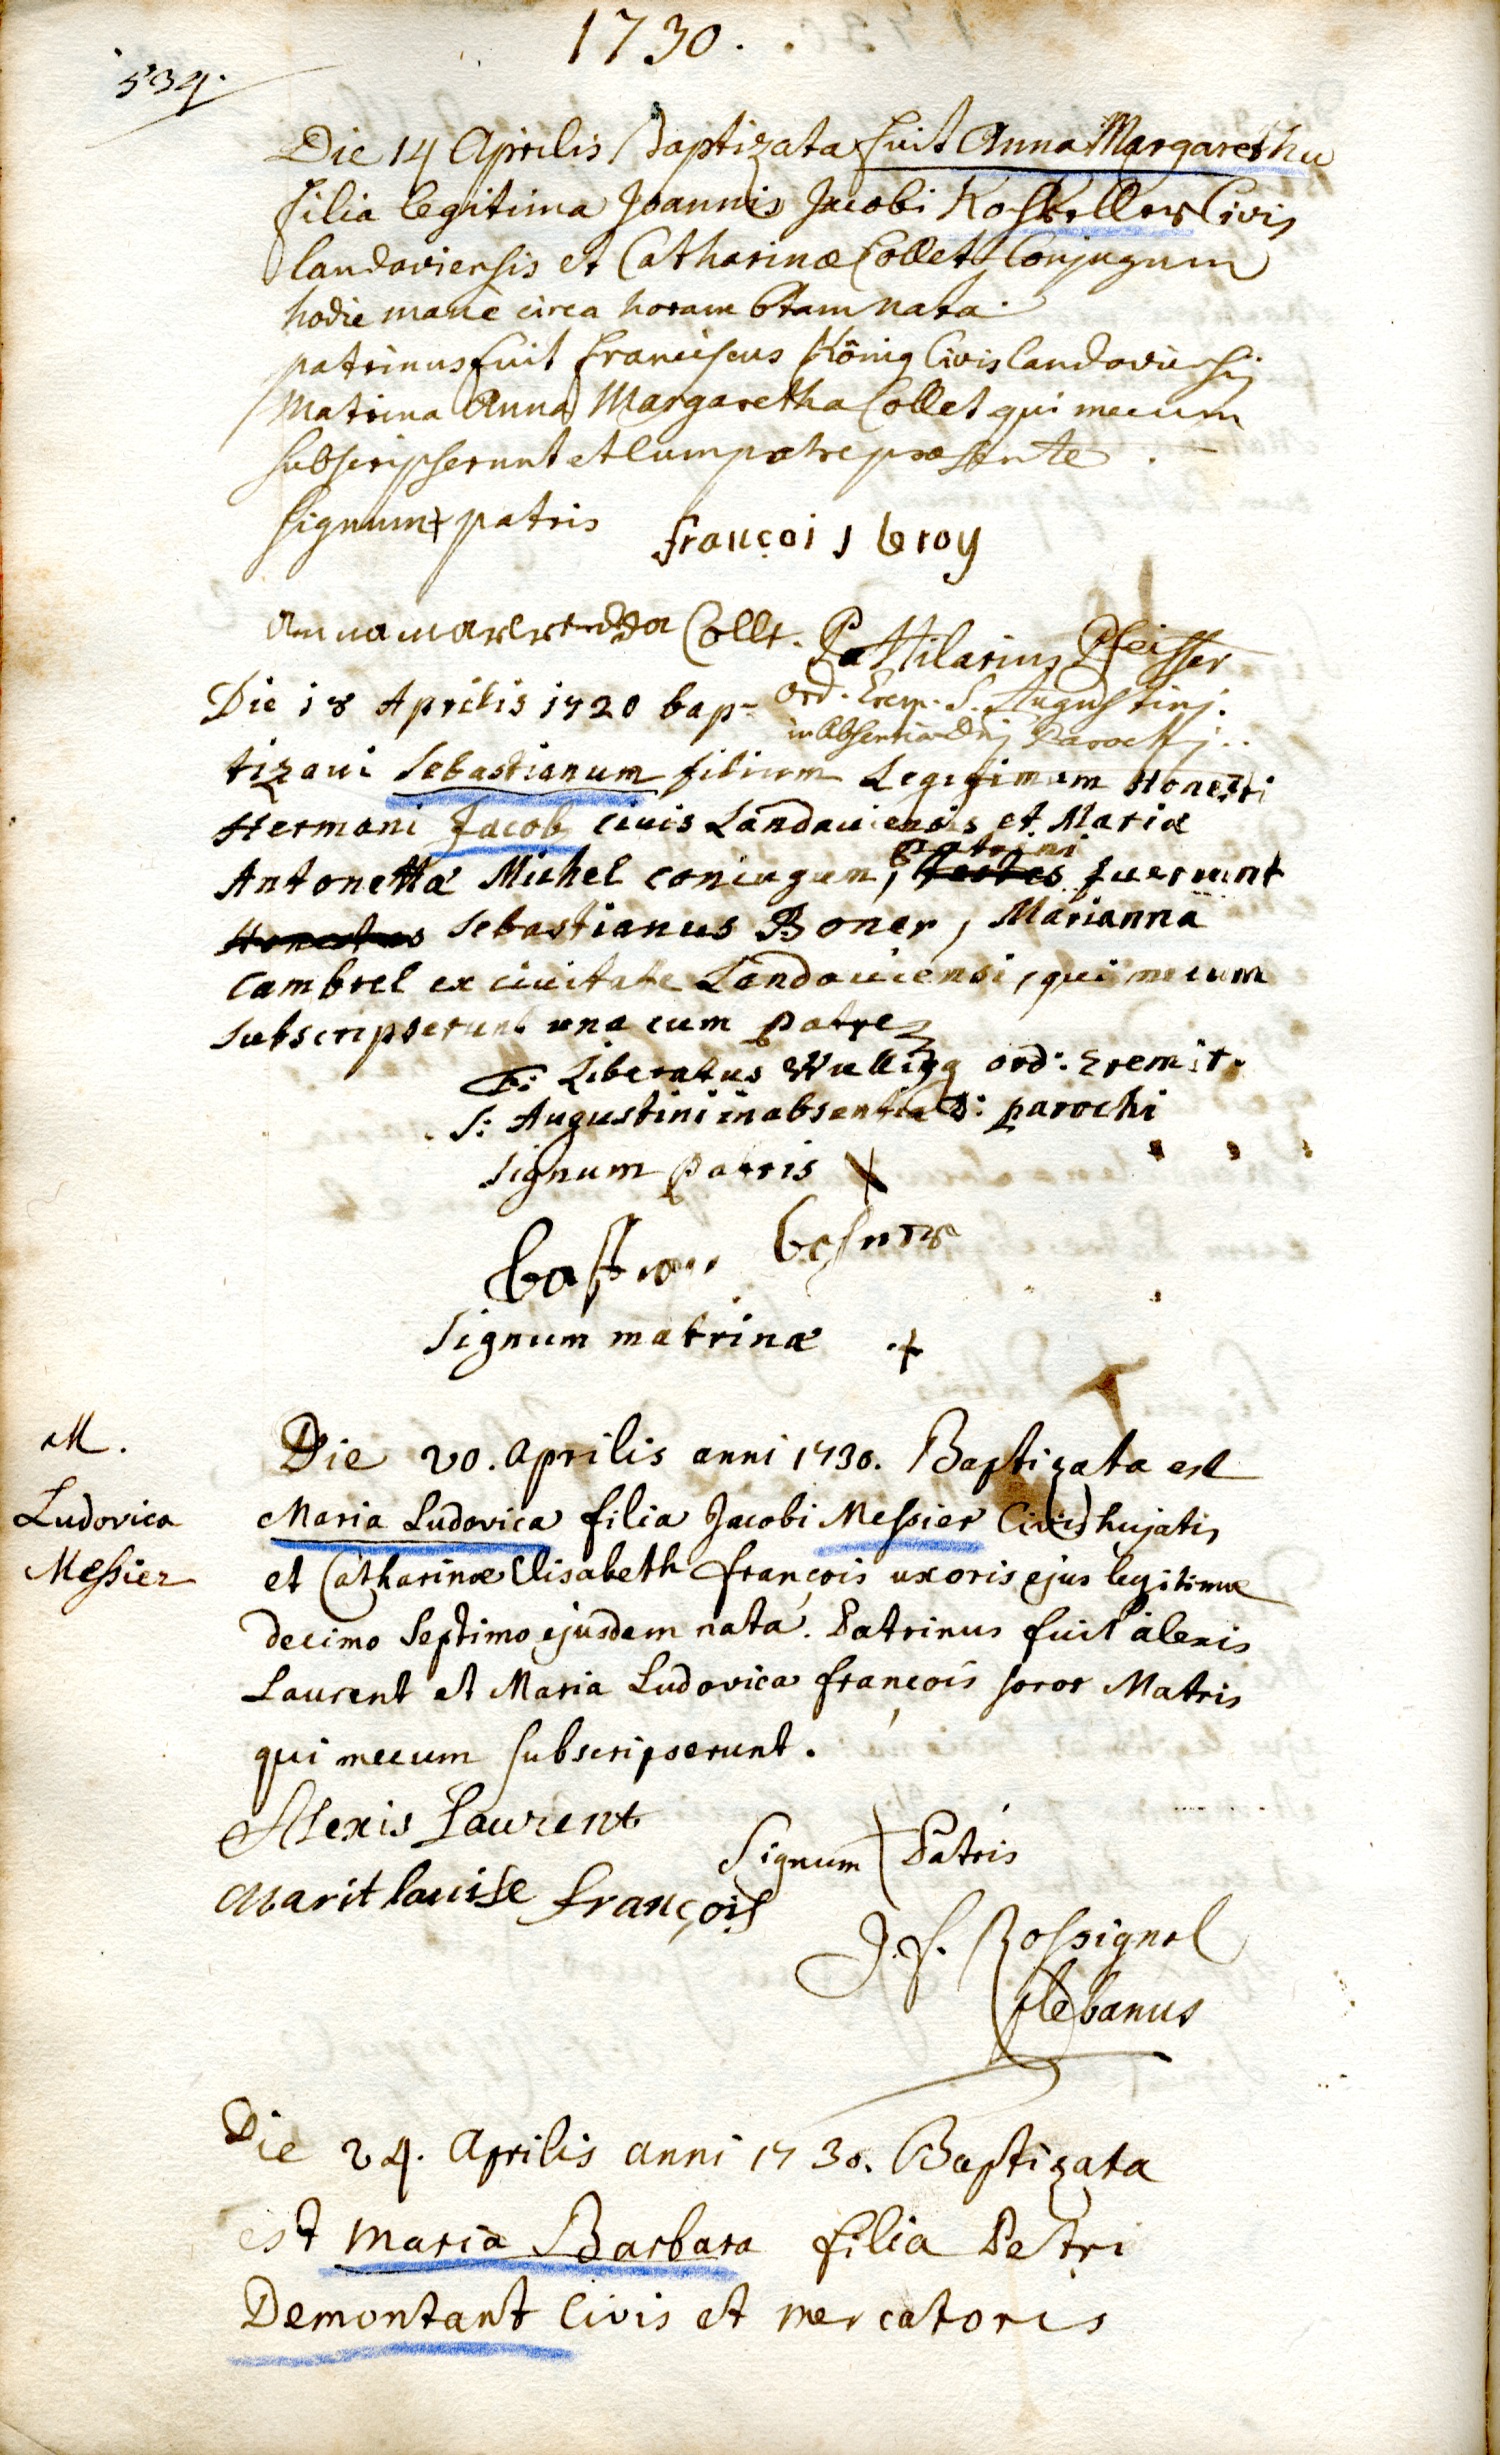 1730.
534.
Die 14 Aprilis Baptizata fuit Anna Margaretha
filia legitima Joannis Jacobi Koskeller Civis
landaviensis et Catharinæ Collet Conjugum
hodie mane circa horam 6tam nata.
patrinus fuit franciscus König Civis landaviensis
Matrina Anna Margaretha Collet qui mecum
subscripserunt et cum patre præsente.
signum + patris
françois le roy
Collt.
P. Hilarius Pfeiffer
Ord. Erem. S. Augustini.
in absentia Dni Parochi..
Die 18 Aprilis 1720 bap-
tizavi Sebastianum filium Legitimum Honesti
Hermani Jacob civis Landaviensis et Mariæ
Antonettæ Michel coniugum, patrini
testes fuerunt
Honestus Sebastianus Boner, Marianna
Cambrel ex civitate Landaviensi, qui mecum
subscripserunt una cum patre
F: Liberatus Wulligg ord: Eremit.
S: Augustini in absentia D: parochi
Signum patris X
bastian besner
Signum matrinæ +
M.
Ludovica
Messier
Die 20. Aprilis anni 1730. Baptizata est
Maria Ludovica filia Jacobi Messier Civis hujatis
et Catharinæ Elisabeth françois uxoris ejus legitimæ
decimo septimo ejusdem nata. Patrinus fuit alexis
Laurent et Maria Ludovica françois soror Matris
qui mecum subscripserunt.
Alexis Laurent
Signum + Patris
Marit louise françois
J. f. Rossignol
plebanus
Die 24. Aprilis anni 1730. Baptizata
est Maria Barbara filia Petri
Demontant Civis et mercatoris